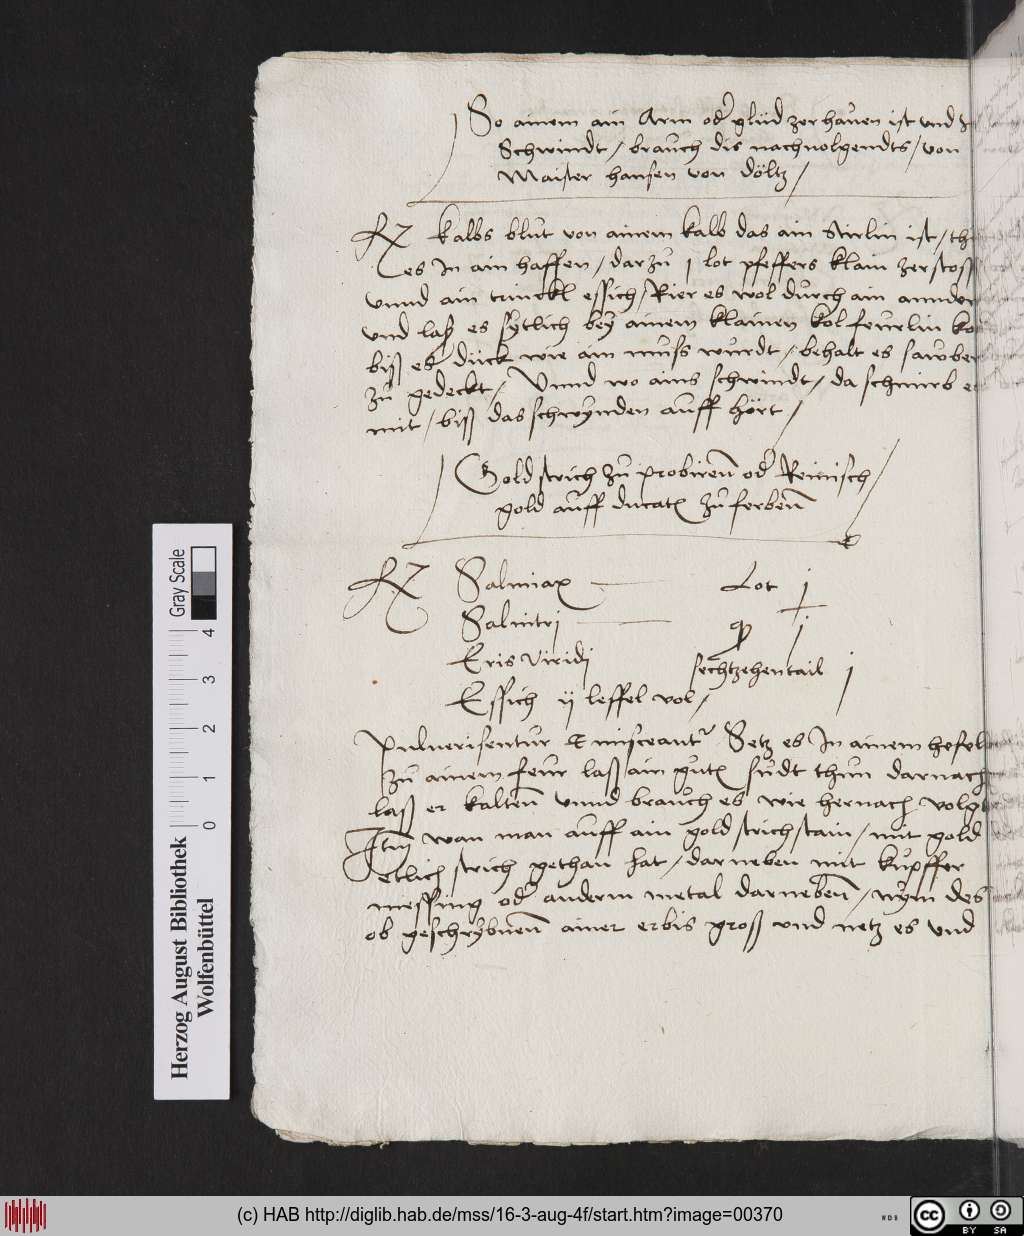 So ainem ain Arm od glüd zerhauen ist vnd
Schwindt / brauch dis nachuolgendts / von
Maister hansen von döltz /
Rx kalbs blut von ainem kalb das ain stierlin ist / th
es In ain haffen / darzu j lot pfeffers klain zerstoss
vnnd ain trinckl essich / Rier es wol durch ain annder
vnd laß es sytlich bey ainem klainen kolfeurlin ko
biß es dück wie ain muss wurdt / behalt es sawber
zu gedeckt / Vnnd wo ains schwindt / da schmirb e
mit / biß das schwynden auff hört /
Gold strich zu probiren od Reinisch
gold auff ducat zu ferben
Rx Salmiax Lot j
Salnitrj j
Eris Viridj sechtzehentail j
Essich ij leffel vol /
Puluerisentur & misceant Setz es In ainem hefel
zu ainem feur lass ain gut sudt thun darnach
lass er kalten vnnd brauch es wie hernach volgt
Itm wan man auff ain gold strichstain / mit gold
etlich strich gethan hat / darneben mit kupffer
messing od anderm metal darneben / nym des
ob geschrybnen ainer erbis gross vnd netz es vnd
Gray Scale
0 1 2 3 4
Herzog August Bibliothek
Wolfenbüttel
(c) HAB http://diglib.hab.de/mss/16-3-aug-4f/start.htm?image=00370
WDB
cc BY SA